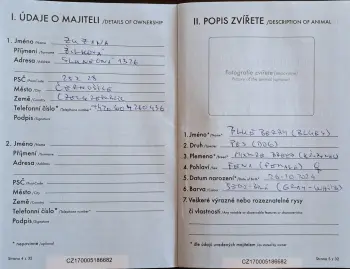 I. ÚDAJE O MAJITELI /DETAILS OF OWNERSHIP
1. Jméno /Name: ZUZANA
Příjmení /Surname:
Adresa /Address: 1326
PSČ /Post-Code: 252 28
Město /City: ČERNOŠICE
Země /Country:
Telefonní číslo* /Telephone number*:
Podpis /Signature:
2. Jméno /Name:
Příjmení /Surname:
Adresa /Address:
PSČ /Post-Code:
Město /City:
Země /Country:
Telefonní číslo* /Telephone number*:
Podpis /Signature:
* nepovinné /optional
CZ170005186682
Strana 4 z 32
II. POPIS ZVÍŘETE /DESCRIPTION OF ANIMAL
Fotografie zvířete (nepovinné)
Picture of the animal (optional)
1. Jméno* /Name*: BERRY
2. Druh /Species: PES (DOG)
3. Plemeno* /Breed*:
4. Pohlaví /Sex: FENA (FEMALE)
5. Datum narození* /Date of birth*: 10. 2024
6. Barva /Colour: (GRAY-WHITE)
7. Veškeré výrazné nebo rozeznatelné rysy
či vlastnosti /Any notable or discernable features or characteristics:
CZ170005186682
Strana 5 z 32